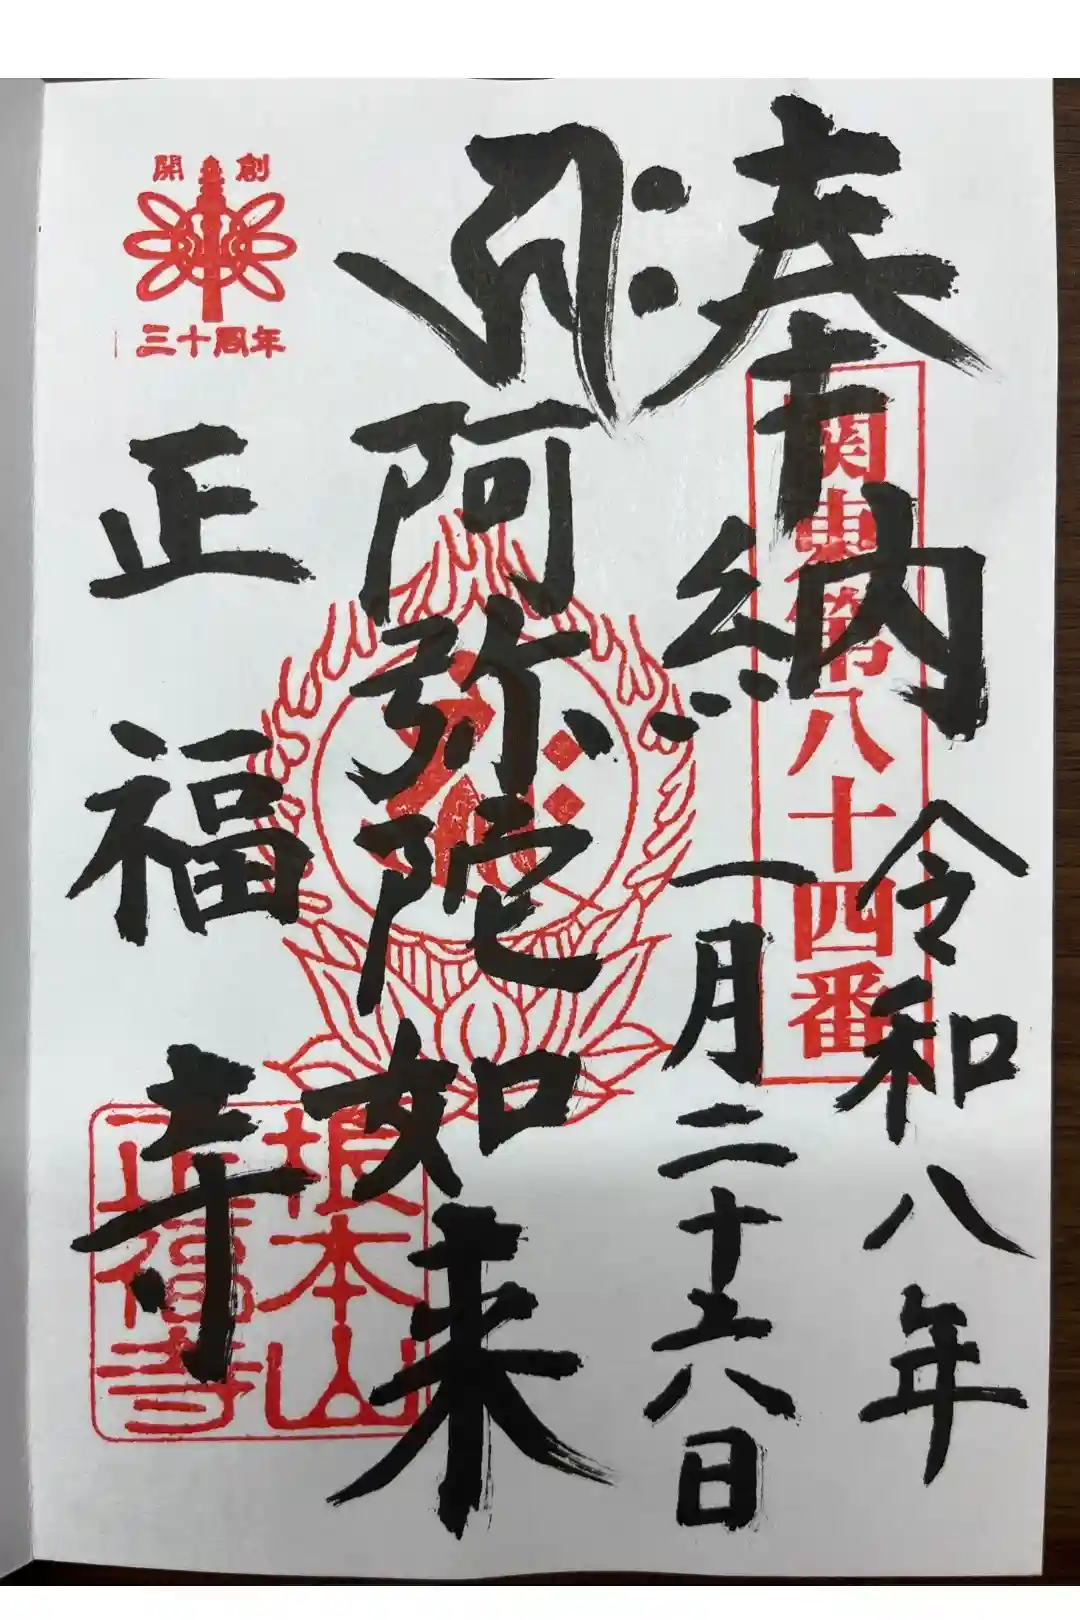 奉納
令和八年
一月二十六日
関東第八十四番
キリーク
阿弥陀如来
正福寺
開創
三十周年
根本山
正福寺